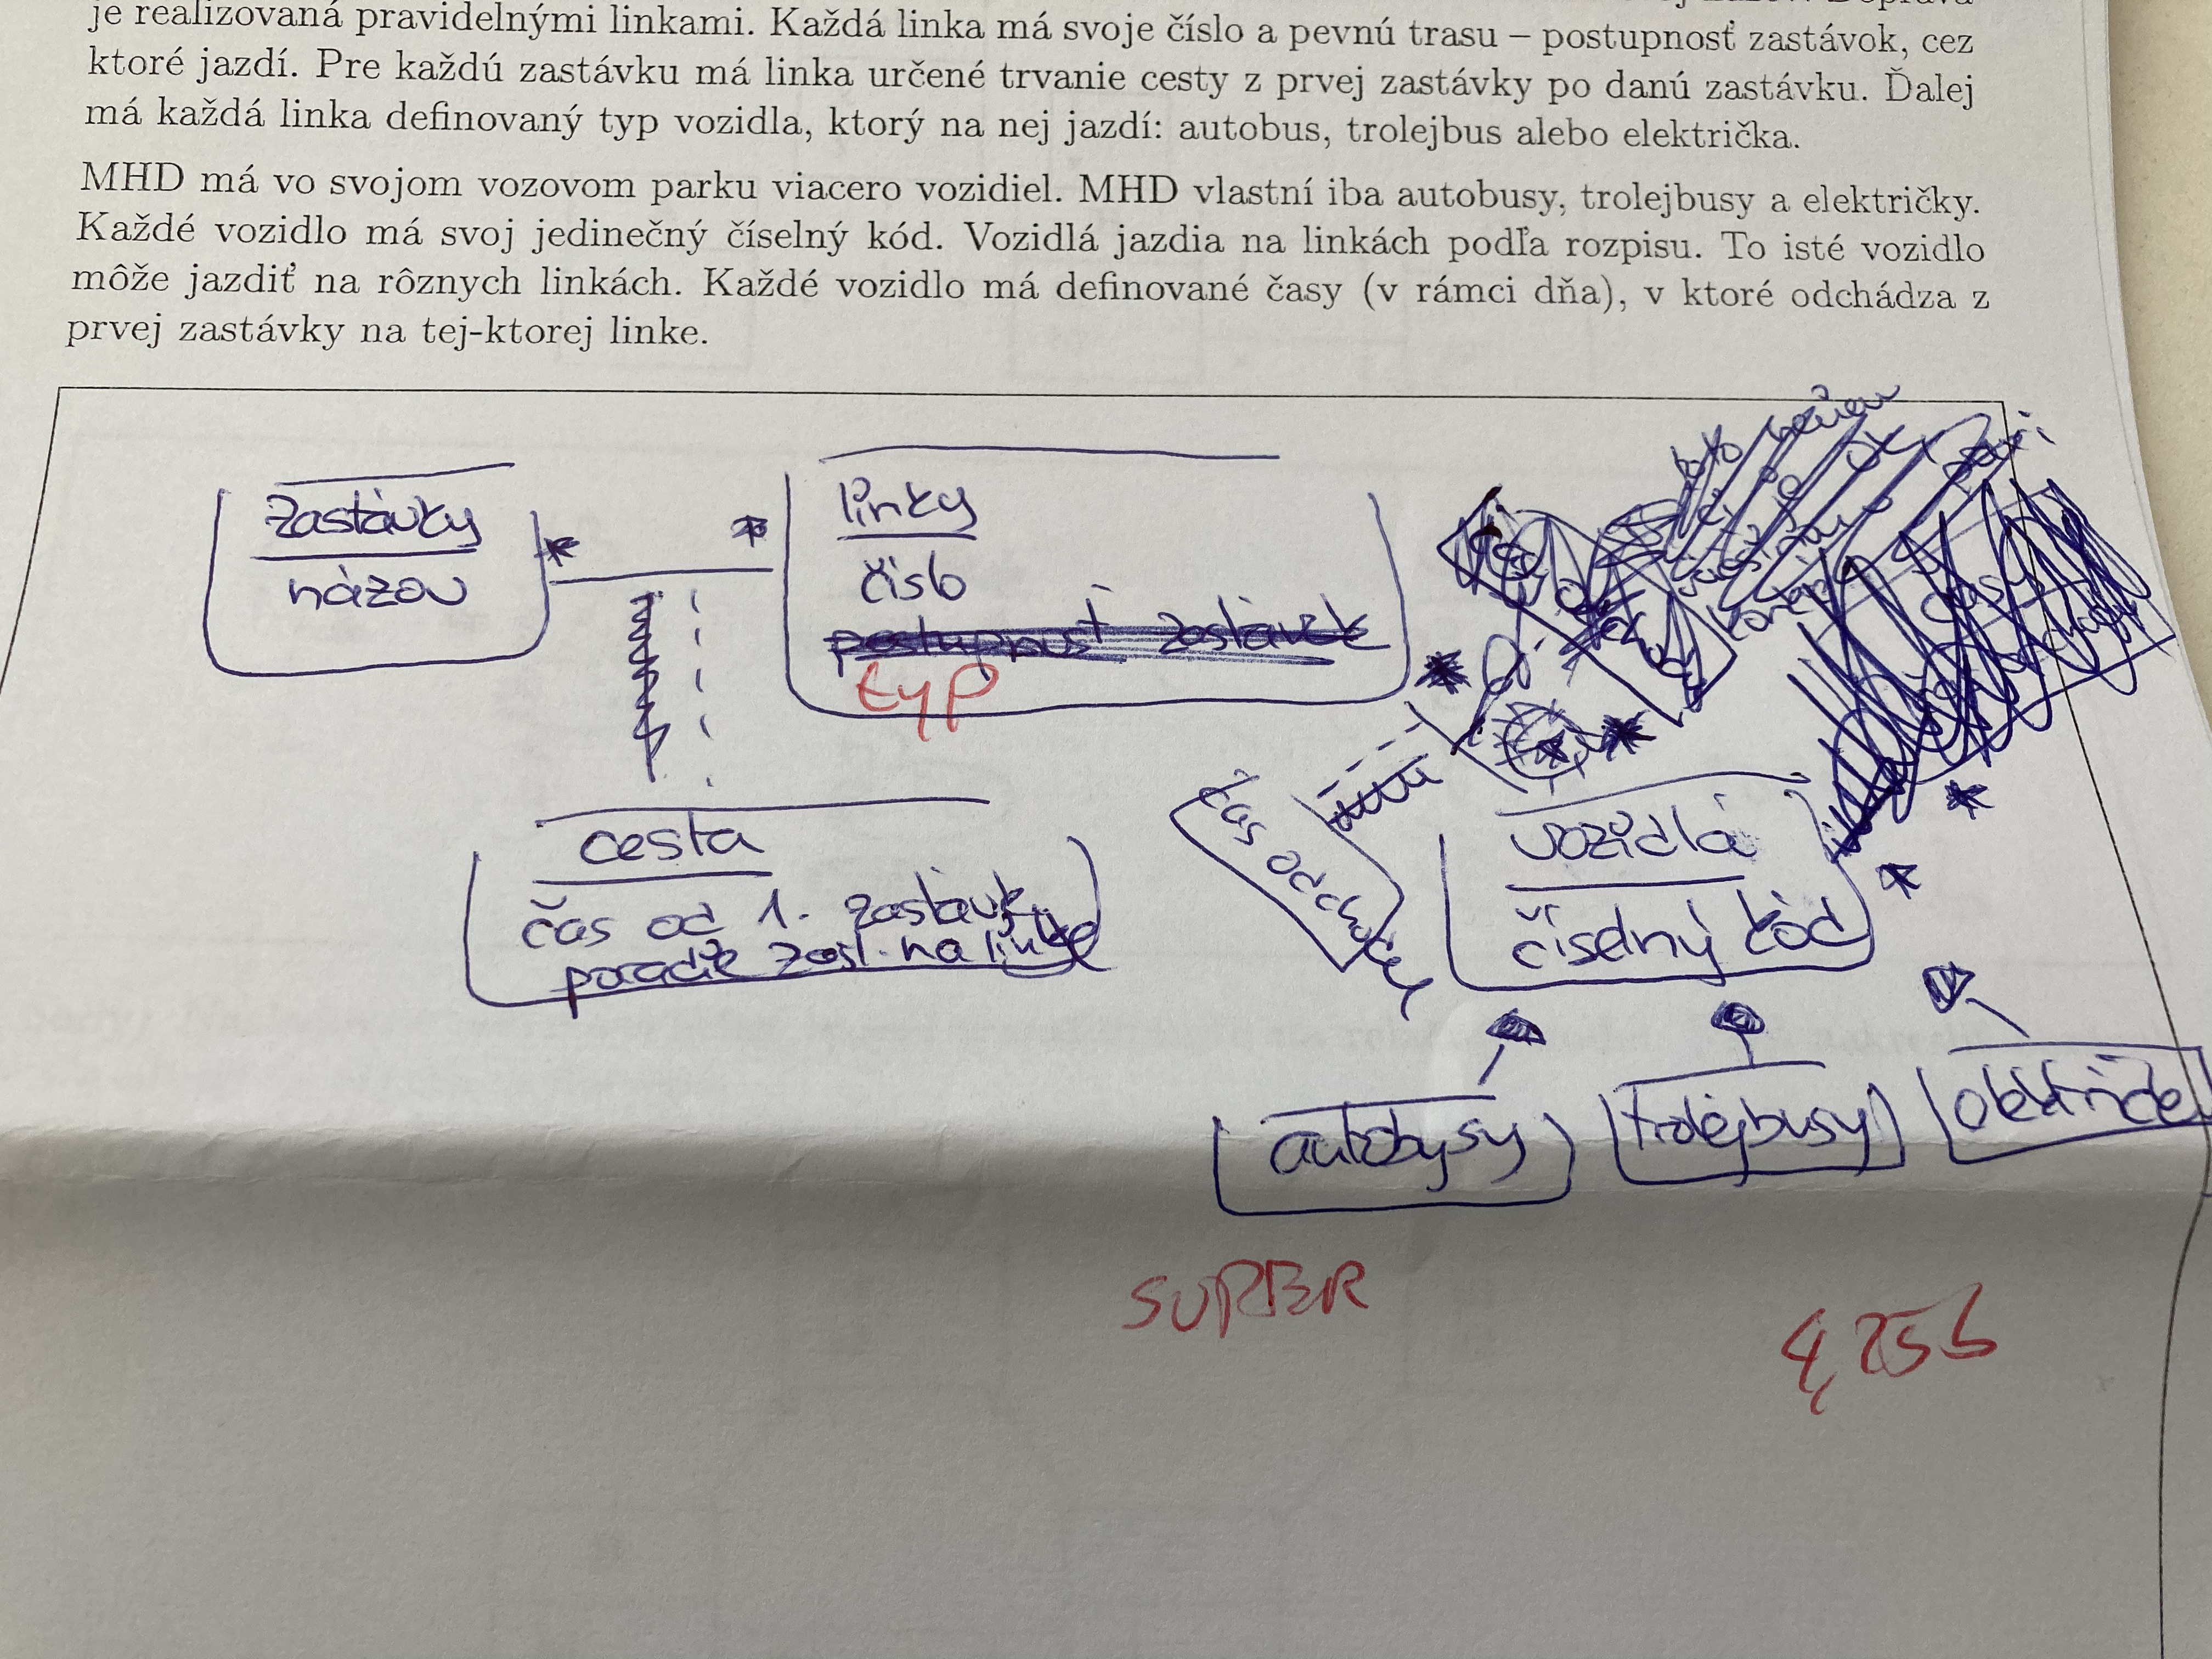 je realizovaná pravidelnými linkami. Každá linka má svoje číslo a pevnú trasu – postupnosť zastávok, cez
ktoré jazdí. Pre každú zastávku má linka určené trvanie cesty z prvej zastávky po danú zastávku. Ďalej
má každá linka definovaný typ vozidla, ktorý na nej jazdí: autobus, trolejbus alebo električka.
MHD má vo svojom vozovom parku viacero vozidiel. MHD vlastní iba autobusy, trolejbusy a električky.
Každé vozidlo má svoj jedinečný číselný kód. Vozidlá jazdia na linkách podľa rozpisu. To isté vozidlo
môže jazdiť na rôznych linkách. Každé vozidlo má definované časy (v rámci dňa), v ktoré odchádza z
prvej zastávky na tej-ktorej linke.
zastávky
názov
* *
linky
číslo
postupnosť zastávok
typ
cesta
čas od 1. zastávky
poradie zast. na linke
čas
vozidlá
číselný kód
autobusy
trolejbusy
SUPER
4,75b